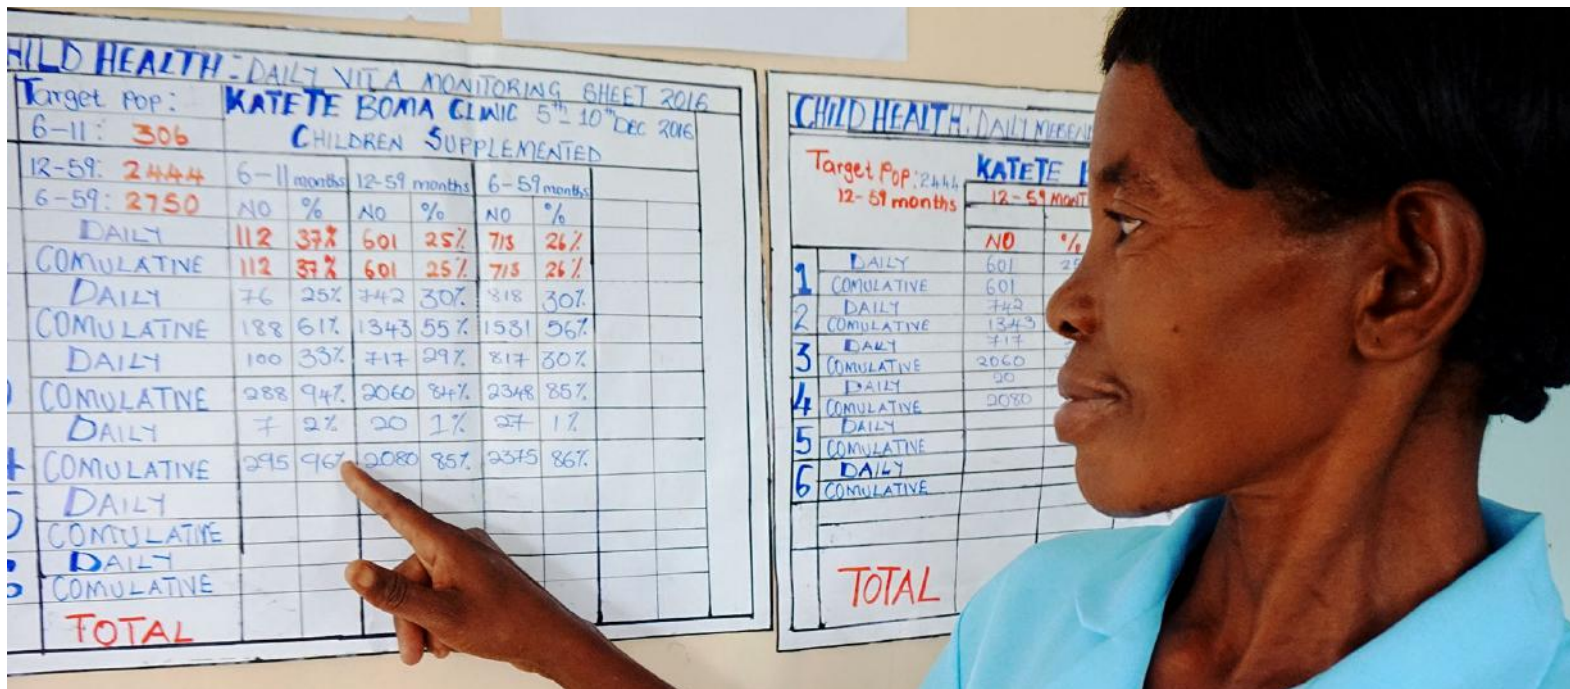 HILD HEALTH: DAILY VIT A MONITORING SHEET 2016
Target Pop: KATETE BOMA CLINIC 5th 10th DEC 2016
6-11: 306 CHILDREN SUPPLEMENTED
12-59: 2444 6-11 months 12-59 months 6-59 months
6-59: 2750 NO % NO % NO %
DAILY 112 37% 601 25% 713 26%
COMULATIVE 112 37% 601 25% 713 26%
DAILY 76 25% 742 30% 818 30%
COMULATIVE 188 61% 1343 55% 1531 56%
DAILY 100 33% 717 29% 817 30%
COMULATIVE 288 94% 2060 84% 2348 85%
DAILY 7 2% 20 1% 27 1%
4 COMULATIVE 295 96% 2080 85% 2375 86%
DAILY
COMULATIVE
DAILY
COMULATIVE
TOTAL
CHILD HEALTH: DAILY MEBEN
Target Pop: 2444 KATETE
12-59 months 12-59 MONT
NO %
1 DAILY 601 25
COMULATIVE 601
2 DAILY 742
COMULATIVE 1343
3 DAILY 717
COMULATIVE 2060
4 DAILY 20
COMULATIVE 2080
5 DAILY
COMULATIVE
6 DAILY
COMULATIVE
TOTAL